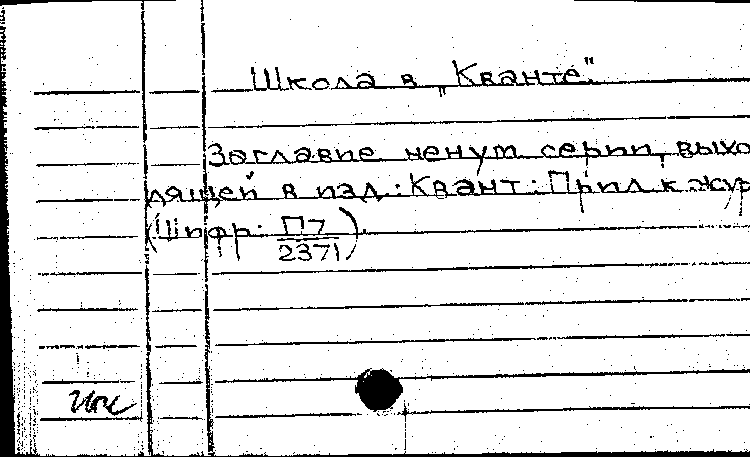 Школа в „Кванте"
Заглавие ненум серии, выхо
дящей в изд.: Квант: Прил. к жур
(Шифр: П7
2371).